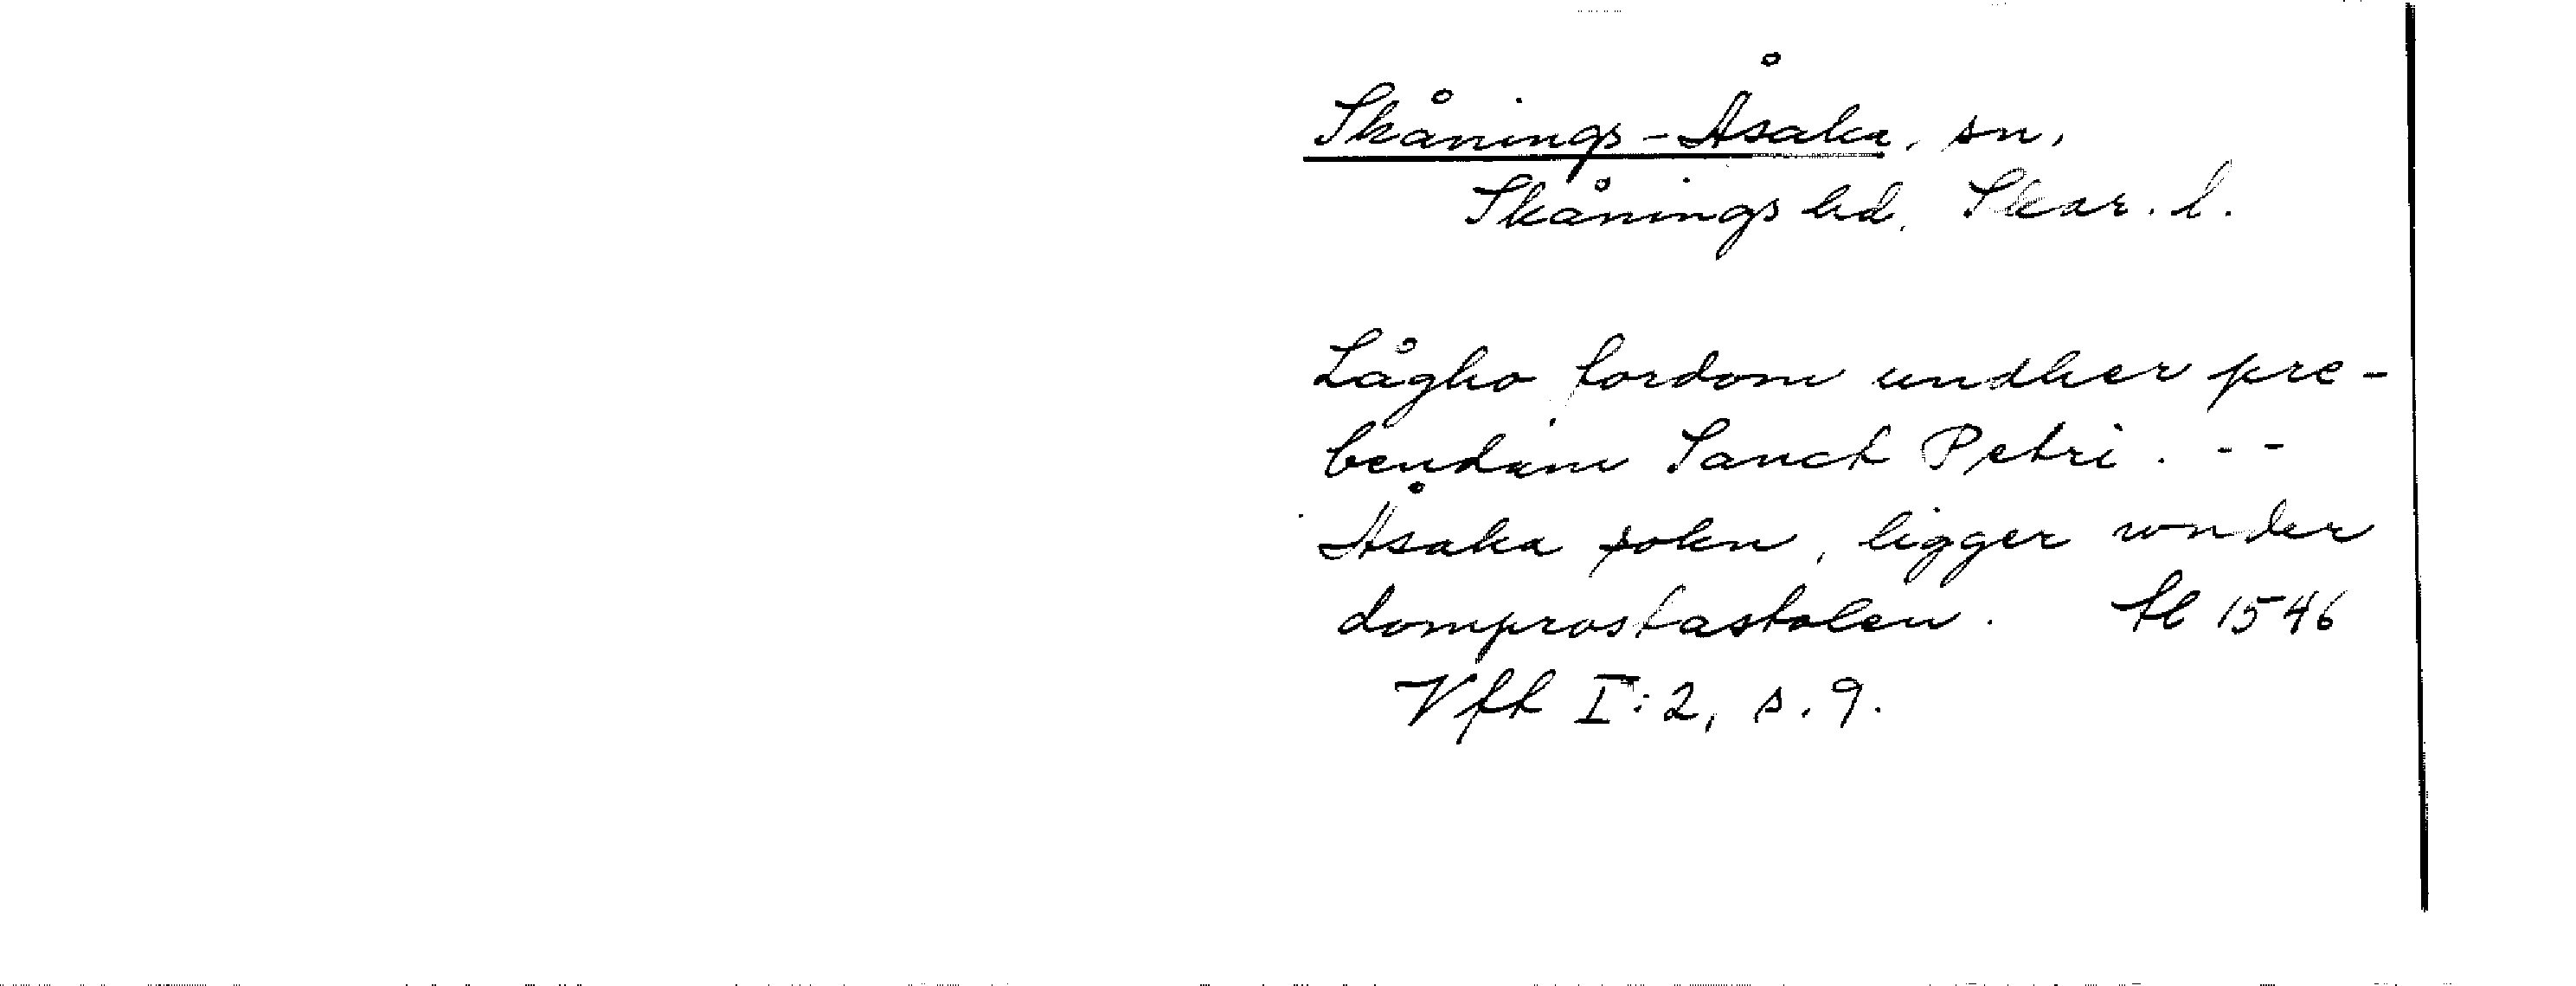 Skånings-Åsaka, sn,
Skånings hd, Skar. l.
Lågho fordom undher pre-
bendam Sanct Petri. - -
Åsaka sokn, ligger wnder
domprostastolen. tl 1546
Vft I:2, s. 9.